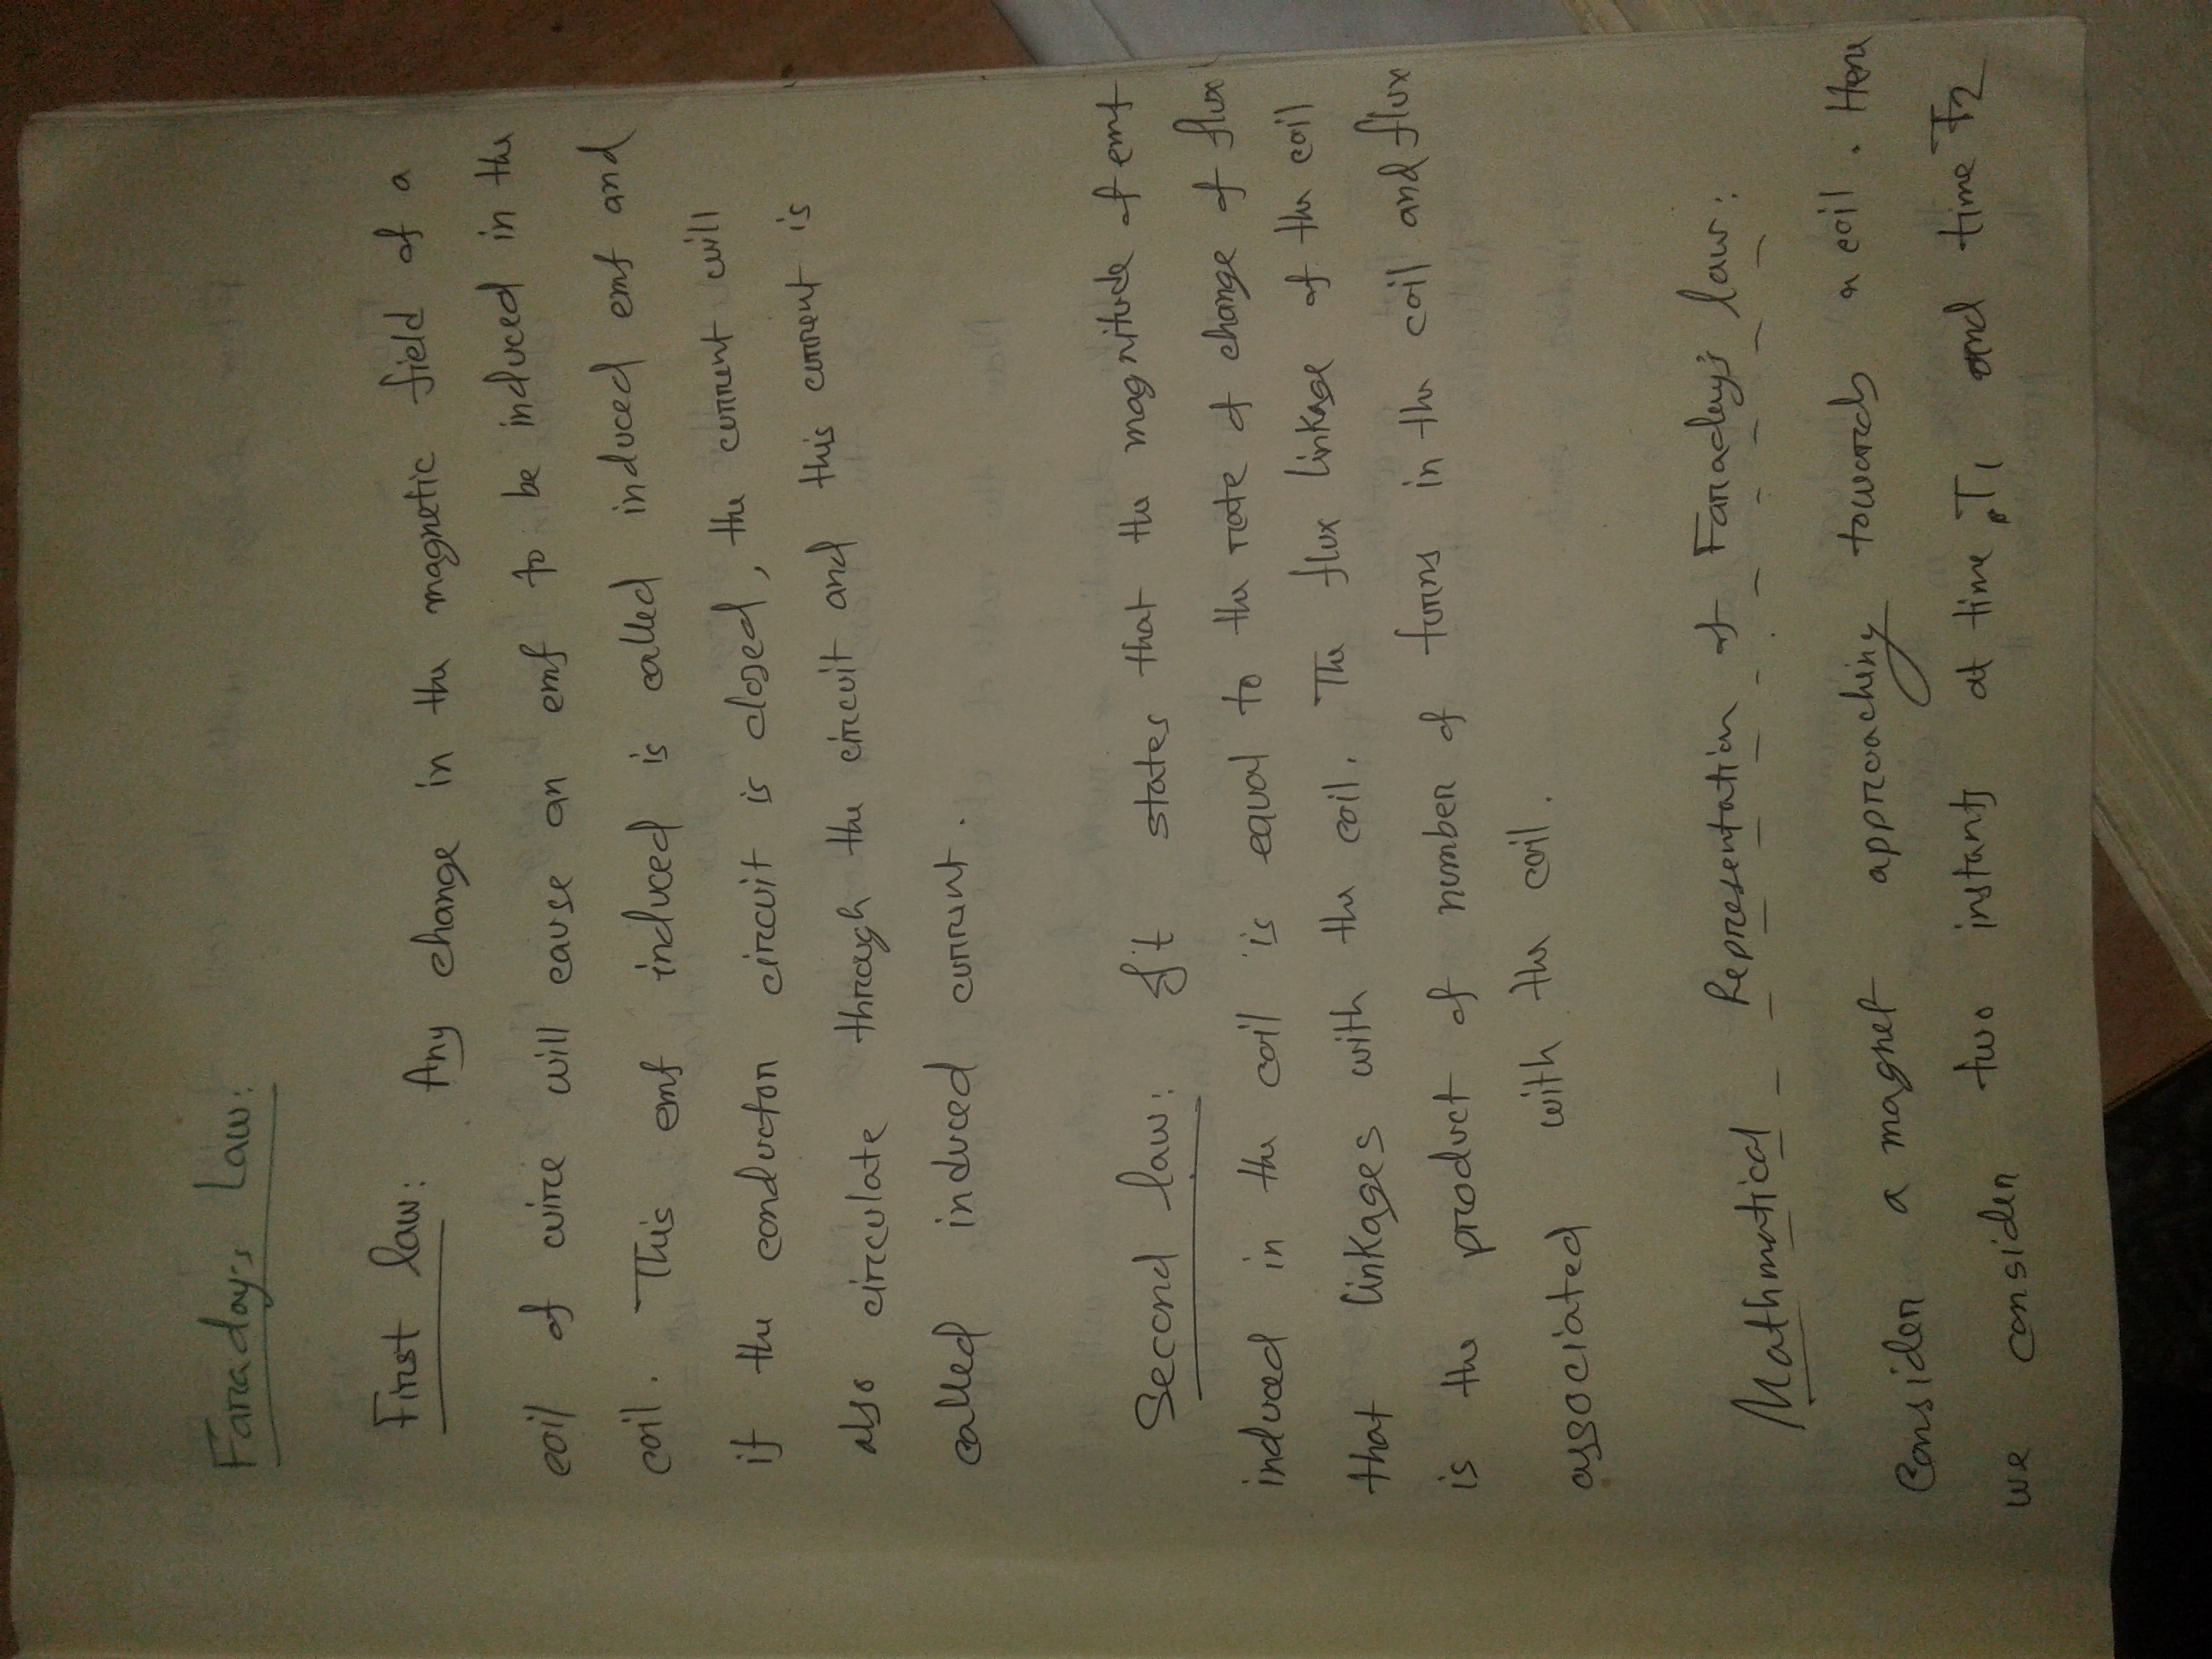 Faraday's Law:
First law: Any change in the magnetic field of a
coil of wire will cause an emf to be induced in the
coil. This emf induced is called induced emf and
if the conductor circuit is closed, the current will
also circulate through the circuit and this current is
called induced current.
Second law: It states that the magnitude of emf
induced in the coil is equal to the rate of change of flux
that linkages with the coil. The flux linkage of the coil
is the product of number of turns in the coil and flux
associated with the coil.
Mathmatical Representation of Faraday's law:
Consider a magnet approaching towards a coil. Here
we consider two instants at time T1 and time T2